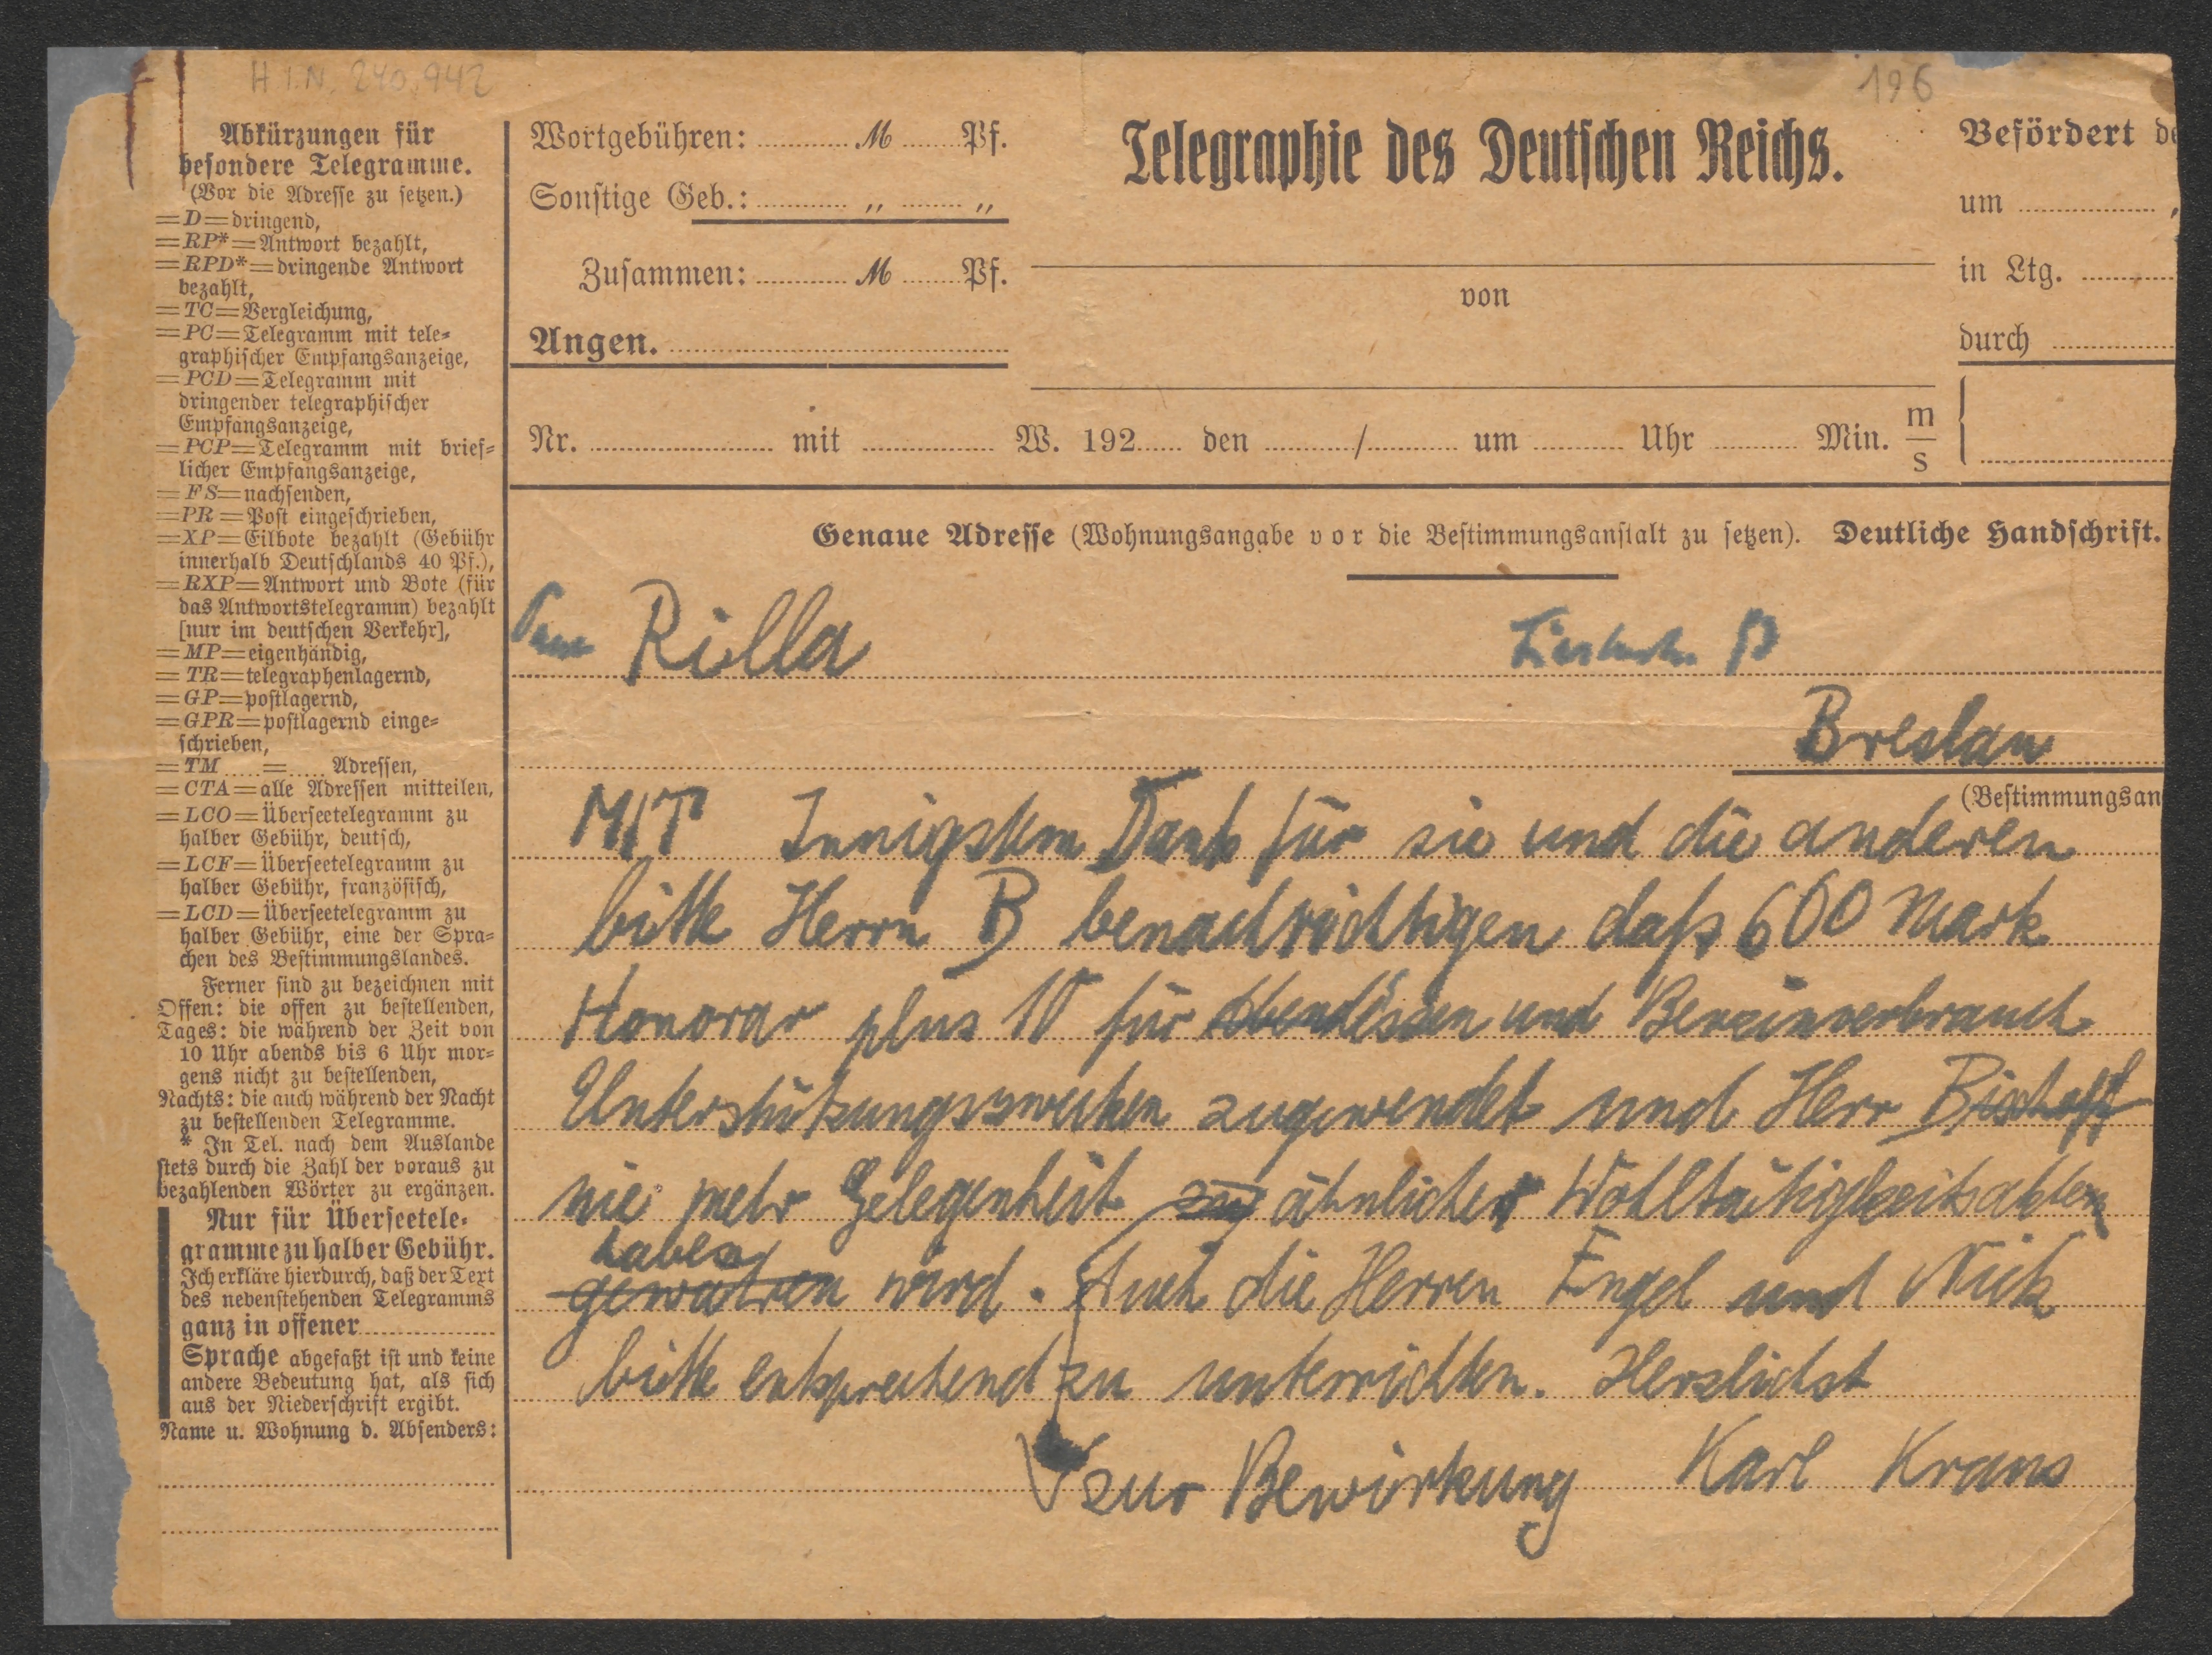 H.I.N. 240.942
196
Abkürzungen für
besondere Telegramme.
(Vor die Adresse zu setzen.)
=D=dringend,
=RP*=Antwort bezahlt,
=RPD*=dringende Antwort
bezahlt,
=TC=Vergleichung,
=PC=Telegramm mit tele-
graphischer Empfangsanzeige,
=PCD=Telegramm mit
dringender telegraphischer
Empfangsanzeige,
=PCP=Telegramm mit brief-
licher Empfangsanzeige,
=FS=nachsenden,
=PR=Post eingeschrieben,
=XP=Eilbote bezahlt (Gebühr
innerhalb Deutschlands 40 Pf.),
=RXP=Antwort und Bote (für
das Antwortstelegramm) bezahlt
[nur im deutschen Verkehr],
=MP=eigenhändig,
=TR=telegraphenlagernd,
=GP=postlagernd,
=GPR=postlagernd einge-
schrieben,
=TM.....=..... Adressen,
=CTA=alle Adressen mitteilen,
=LCO=Überseetelegramm zu
halber Gebühr, deutsch,
=LCF=Überseetelegramm zu
halber Gebühr, französisch,
=LCD=Überseetelegramm zu
halber Gebühr, eine der Spra-
chen des Bestimmungslandes.
Ferner sind zu bezeichnen mit
Offen: die offen zu bestellenden,
Tages: die während der Zeit von
10 Uhr abends bis 6 Uhr mor-
gens nicht zu bestellenden,
Nachts: die auch während der Nacht
zu bestellenden Telegramme.
* In Tel. nach dem Auslande
stets durch die Zahl der voraus zu
bezahlenden Wörter zu ergänzen.
Nur für Überseetele-
gramme zu halber Gebühr.
Ich erkläre hierdurch, daß der Text
des nebenstehenden Telegramms
ganz in offener
Sprache abgefaßt ist und keine
andere Bedeutung hat, als sich
aus der Niederschrift ergibt.
Name u. Wohnung d. Absenders:
Wortgebühren: M Pf.
Sonstige Geb.: „ „
Zusammen: M Pf.
Angen.
Telegraphie des Deutschen Reichs.
von
Befördert de
um
in Ltg.
durch
Nr. mit W. 192 den / um Uhr Min. m/s
Genaue Adresse (Wohnungsangabe vor die Bestimmungsanstalt zu setzen). Deutliche Handschrift.
Rilla
Breslau
(Bestimmungsan
MIT Innigstem Dank für sie und die anderen
bitte Herrn B benachrichtigen daß 600 Mark
Honorar plus 10 für Abendessen und Benzinverbrauch
Unterstützungszwecken zugewendet und Herr Bischoff
nie mehr Gelegenheit zu ähnlicher Wohltätigkeitsakten
haben
gewähren wird. Auch die Herren Engel und Nick
bitte entsprechend zu unterrichten. Herzlichst
zur Bewirkung Karl Kraus